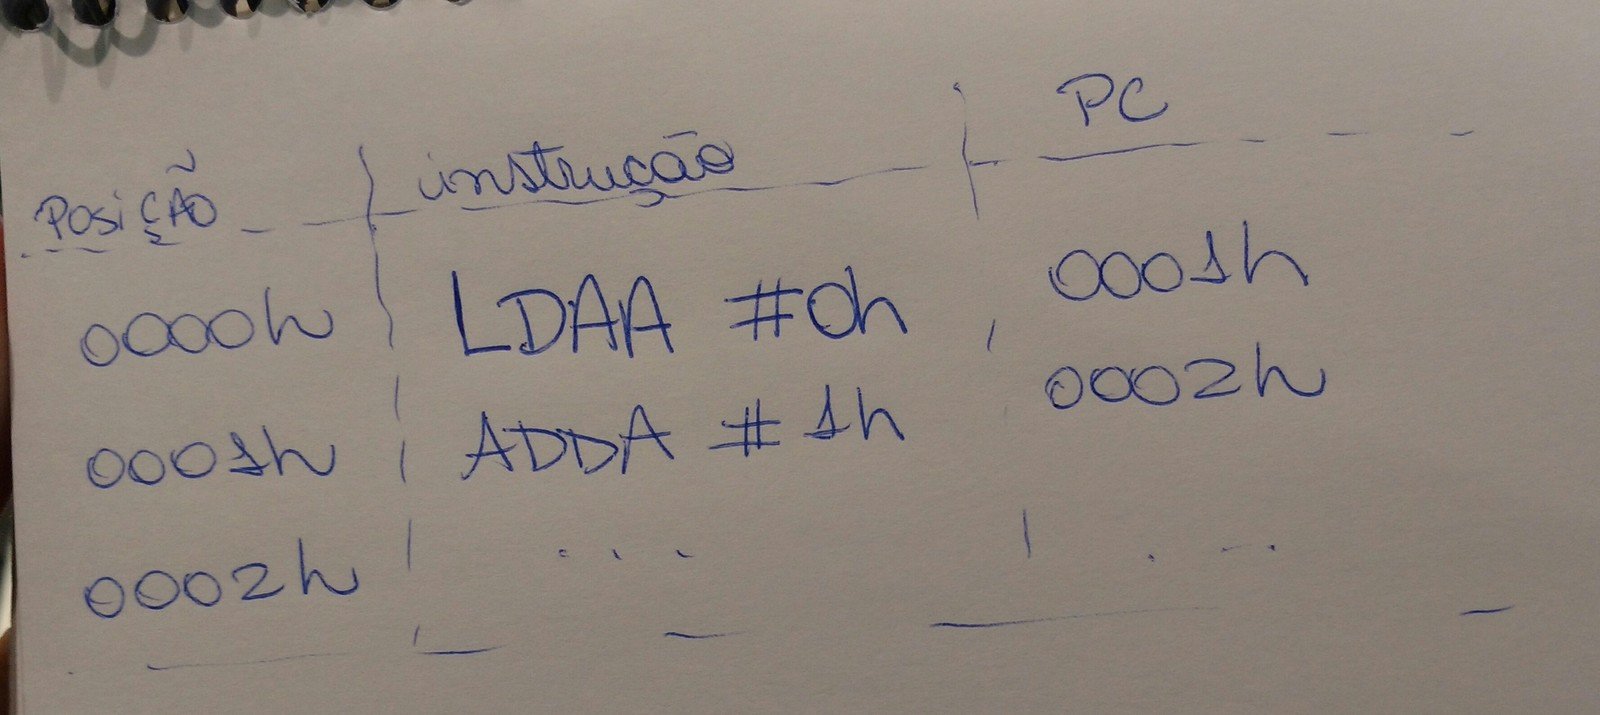 POSIÇÃO instrução PC
0000h LDAA #0h 0001h
0001h ADDA #1h 0002h
0002h ... ...